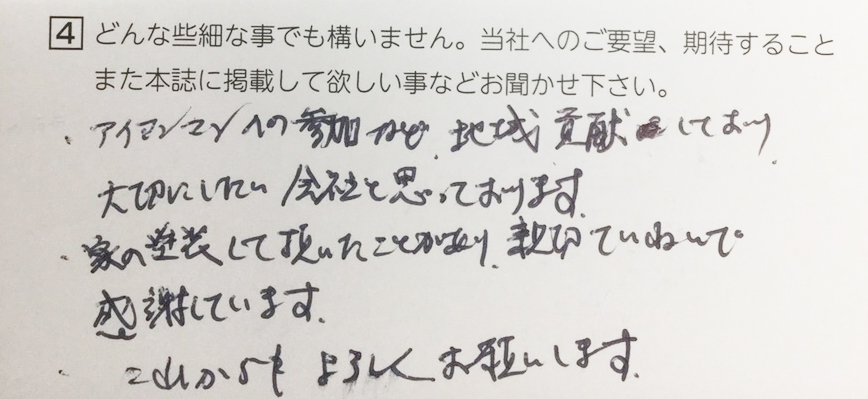 4 どんな些細な事でも構いません。当社へのご要望、期待すること
また本誌に掲載して欲しい事などお聞かせ下さい。
・アイアンマンへの参加など、地域貢献しており
大切にしたい会社と思っております。
・家の塗装して頂いたことがあり、親切ていねいで
感謝しています。
これからもよろしくお願いします。